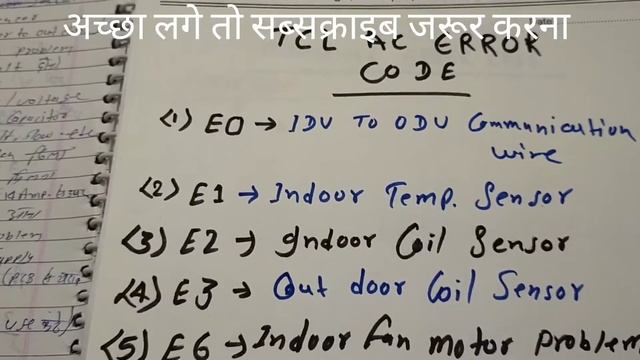 अच्छा लगे तो सब्सक्राइब जरूर करना
TCL AC ERROR
CODE
<1> E0 → IDU TO ODU Communication
wire
<2> E1 → Indoor Temp. Sensor
<3> E2 → Indoor Coil Sensor
<4> E3 → Out door Coil Sensor
<5> E6 → Indoor fan motor Problem
problem
voltage